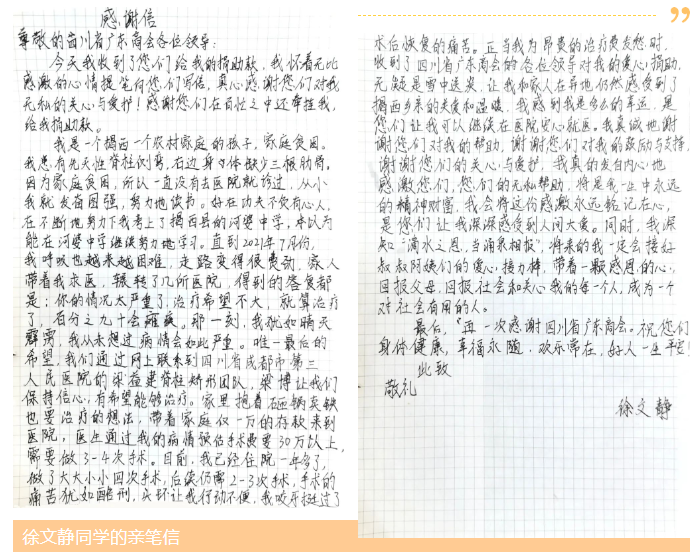 感谢信
尊敬的四川省广东商会各位领导:
今天我收到了您们给我的捐助款,我怀着无比
感激的心情提笔向您们写信,真心感谢您们对我
无私的关心与爱护!感谢您们在百忙之中还牵挂我,
给我捐助款。
我是一个揭西一个农村家庭的孩子,家庭贫困。
我患有先天性脊柱侧弯,右边身体缺少三根肋骨。
因为家庭贫困,所以一直没有去医院就诊过,从小
我就发奋图强,努力地读书。好在功夫不负有心人,
在不断地努力下我考上了揭西县的河婆中学,本以为
能在河婆中学继续努力地学习。直到2021年7月份,
我呼吸也越来越困难,走路变得很费劲,家人
带着我求医,辗转了几所医院,得到的答复都
是:你的情况太严重了,治疗希望不大,就算治疗
了,百分之九十会瘫痪。那一刻,我犹如晴天
霹雳,我从未想过病情会如此严重。唯一最后的
希望,我们通过网上联系到四川省成都市第三
人民医院的梁益建脊柱矫形团队,梁博让我们
保持信心,有希望能够治疗。家里抱着砸锅卖铁
也要治疗的想法,带着家庭仅一万的存款来到
医院,医生通过我的病情预估手术费要30万以上,
需要做3-4次手术。目前,我已经住院一年多了,
做了大大小小四次手术,后续仍需2-3次手术,手术的
痛苦犹如酷刑,头环让我行动不便,我咬牙挺过了
术后恢复的痛苦。正当我为昂贵的治疗费发愁时,
收到了四川省广东商会的各位领导对我的爱心捐助,
无疑是雪中送炭,让我和家人在异地仍然感受到了
揭西乡亲的关爱和温暖,我感到我是多么的幸运,是
您们让我可以继续在医院安心就医。我真诚地谢
谢您们对我的帮助,谢谢您们对我的鼓励与支持,
谢谢您们的关心与爱护,我真的发自内心地
感激您们,您们的无私帮助,将是我一生中永远
的精神财富,我会将这份感激永远铭记在心,
是您们让我深深感受到人间大爱。同时,我深
知“滴水之恩,当涌泉相报”,将来的我一定会接好
叔叔阿姨们的爱心接力棒,带着一颗感恩的心,
回报父母,回报社会和关心我的每一个人,成为一个
对社会有用的人。
最后,再一次感谢四川省广东商会。祝您们
身体健康,幸福永随,欢乐常在,好人一生平安!
此致
敬礼
徐文静
徐文静同学的亲笔信